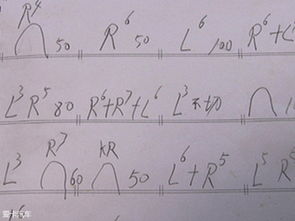 R⁴ ∩ 50 R⁶ 50 L⁶ 100 R⁶+L
L³ R⁵ 80 R⁶+R⁷+L⁶ L³不切 ∩
L³ R⁷ ∩ 60 KR ∩ 50 L⁶+R⁵ L⁵ R
爱卡汽车